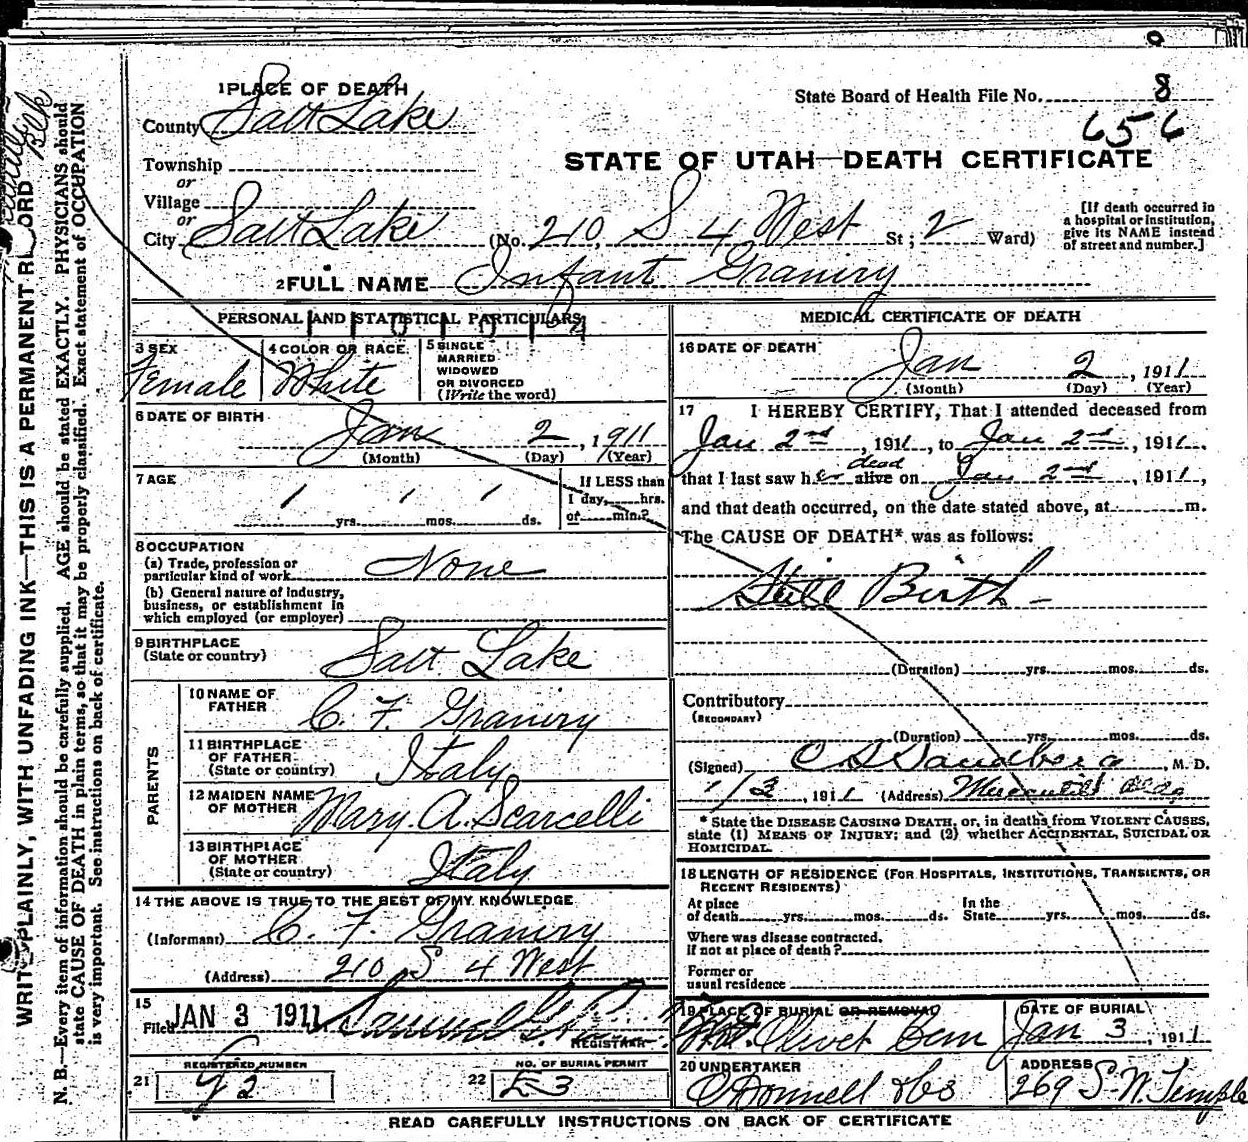 1 PLACE OF DEATH
County Salt Lake
Township
or
Village
or
City Salt Lake (No. 210, S 4 West St; 2 Ward)
State Board of Health File No. 8
656
STATE OF UTAH—DEATH CERTIFICATE
[If death occurred in
a hospital or institution,
give its NAME instead
of street and number.]
2 FULL NAME Infant Graniry
PERSONAL AND STATISTICAL PARTICULARS
3 SEX
Female
4 COLOR OR RACE
White
5 SINGLE
MARRIED
WIDOWED
OR DIVORCED
(Write the word)
6 DATE OF BIRTH
Jan 2, 1911
(Month) (Day) (Year)
7 AGE
yrs. mos. ds.
If LESS than
1 day, hrs.
or min.?
8 OCCUPATION
(a) Trade, profession or
particular kind of work None
(b) General nature of industry,
business, or establishment in
which employed (or employer)
9 BIRTHPLACE
(State or country) Salt Lake
PARENTS
10 NAME OF
FATHER C. F. Graniry
11 BIRTHPLACE
OF FATHER
(State or country) Italy
12 MAIDEN NAME
OF MOTHER Mary. A. Scarcelli
13 BIRTHPLACE
OF MOTHER
(State or country) Italy
14 THE ABOVE IS TRUE TO THE BEST OF MY KNOWLEDGE
(Informant) C. F. Graniry
(Address) 210 S 4 West
15
Filed JAN 3 1911
REGISTRAR
REGISTERED NUMBER
21
NO. OF BURIAL PERMIT
22
MEDICAL CERTIFICATE OF DEATH
16 DATE OF DEATH
Jan 2, 1911
(Month) (Day) (Year)
17 I HEREBY CERTIFY, That I attended deceased from
Jan 2nd, 1911, to Jan 2nd, 1911,
that I last saw her dead alive on Jan 2nd, 1911,
and that death occurred, on the date stated above, at m.
The CAUSE OF DEATH* was as follows:
Still Birth -
(Duration) yrs. mos. ds.
Contributory
(SECONDARY)
(Duration) yrs. mos. ds.
(Signed) C S Sandberg, M. D.
1/3, 1911 (Address) Mercantile Bldg
* State the DISEASE CAUSING DEATH, or, in deaths from VIOLENT CAUSES,
state (1) MEANS OF INJURY; and (2) whether ACCIDENTAL, SUICIDAL OR
HOMICIDAL.
18 LENGTH OF RESIDENCE (FOR HOSPITALS, INSTITUTIONS, TRANSIENTS, OR
RECENT RESIDENTS)
At place
of death yrs. mos. ds.
In the
State yrs. mos. ds.
Where was disease contracted,
if not at place of death?
Former or
usual residence
19 PLACE OF BURIAL OR REMOVAL
Mt. Olivet Cem
DATE OF BURIAL
Jan 3, 1911
20 UNDERTAKER
O'Donnell & Co
ADDRESS
269 S. W. Temple
READ CAREFULLY INSTRUCTIONS ON BACK OF CERTIFICATE
WRITE PLAINLY, WITH UNFADING INK—THIS IS A PERMANENT RECORD
N. B.—Every item of information should be carefully supplied. AGE should be stated EXACTLY. PHYSICIANS should
state CAUSE OF DEATH in plain terms, so that it may be properly classified. Exact statement of OCCUPATION
is very important. See instructions on back of certificate.